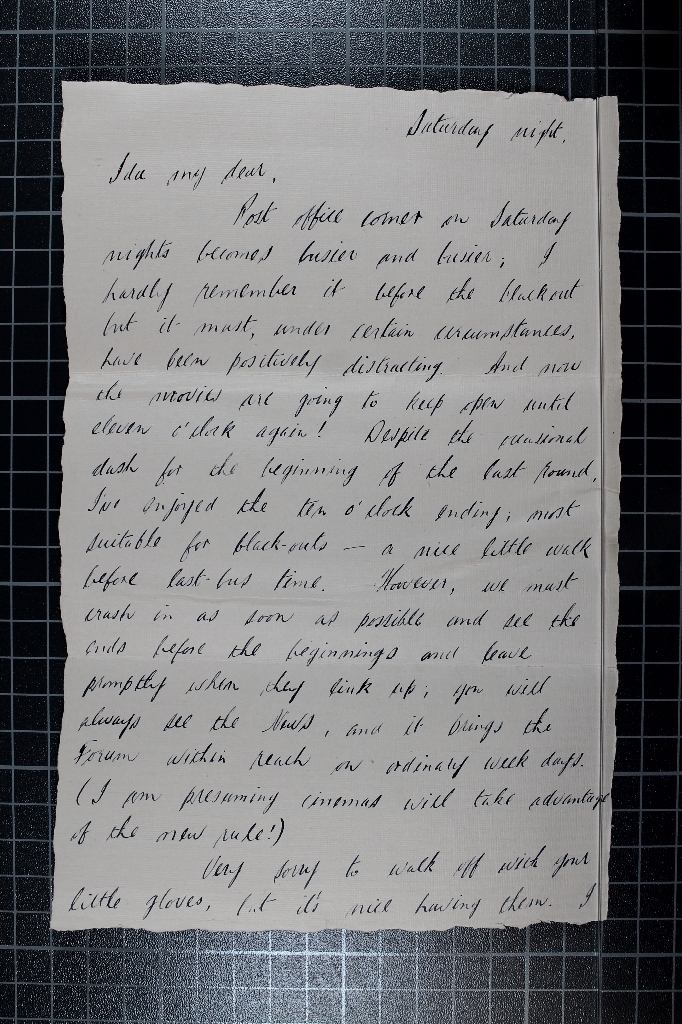 Saturday night.
Ida my dear,
Post office corner on Saturday
nights becomes busier and busier; I
hardly remember it before the blackout
but it must, under certain circumstances,
have been positively distracting. And now
the movies are going to keep open until
eleven o'clock again! Despite the occasional
dash for the beginning of the last round,
I've enjoyed the ten o'clock ending; most
suitable for black-outs — a nice little walk
before last-bus time. However, we must
crash in as soon as possible and see the
ends before the beginnings and leave
promptly when they link up; you will
always see the News, and it brings the
Forum within reach on ordinary week days.
(I am presuming cinemas will take advantage
of the new rule!)
Very sorry to walk off with your
little gloves, but it's nice having them. I